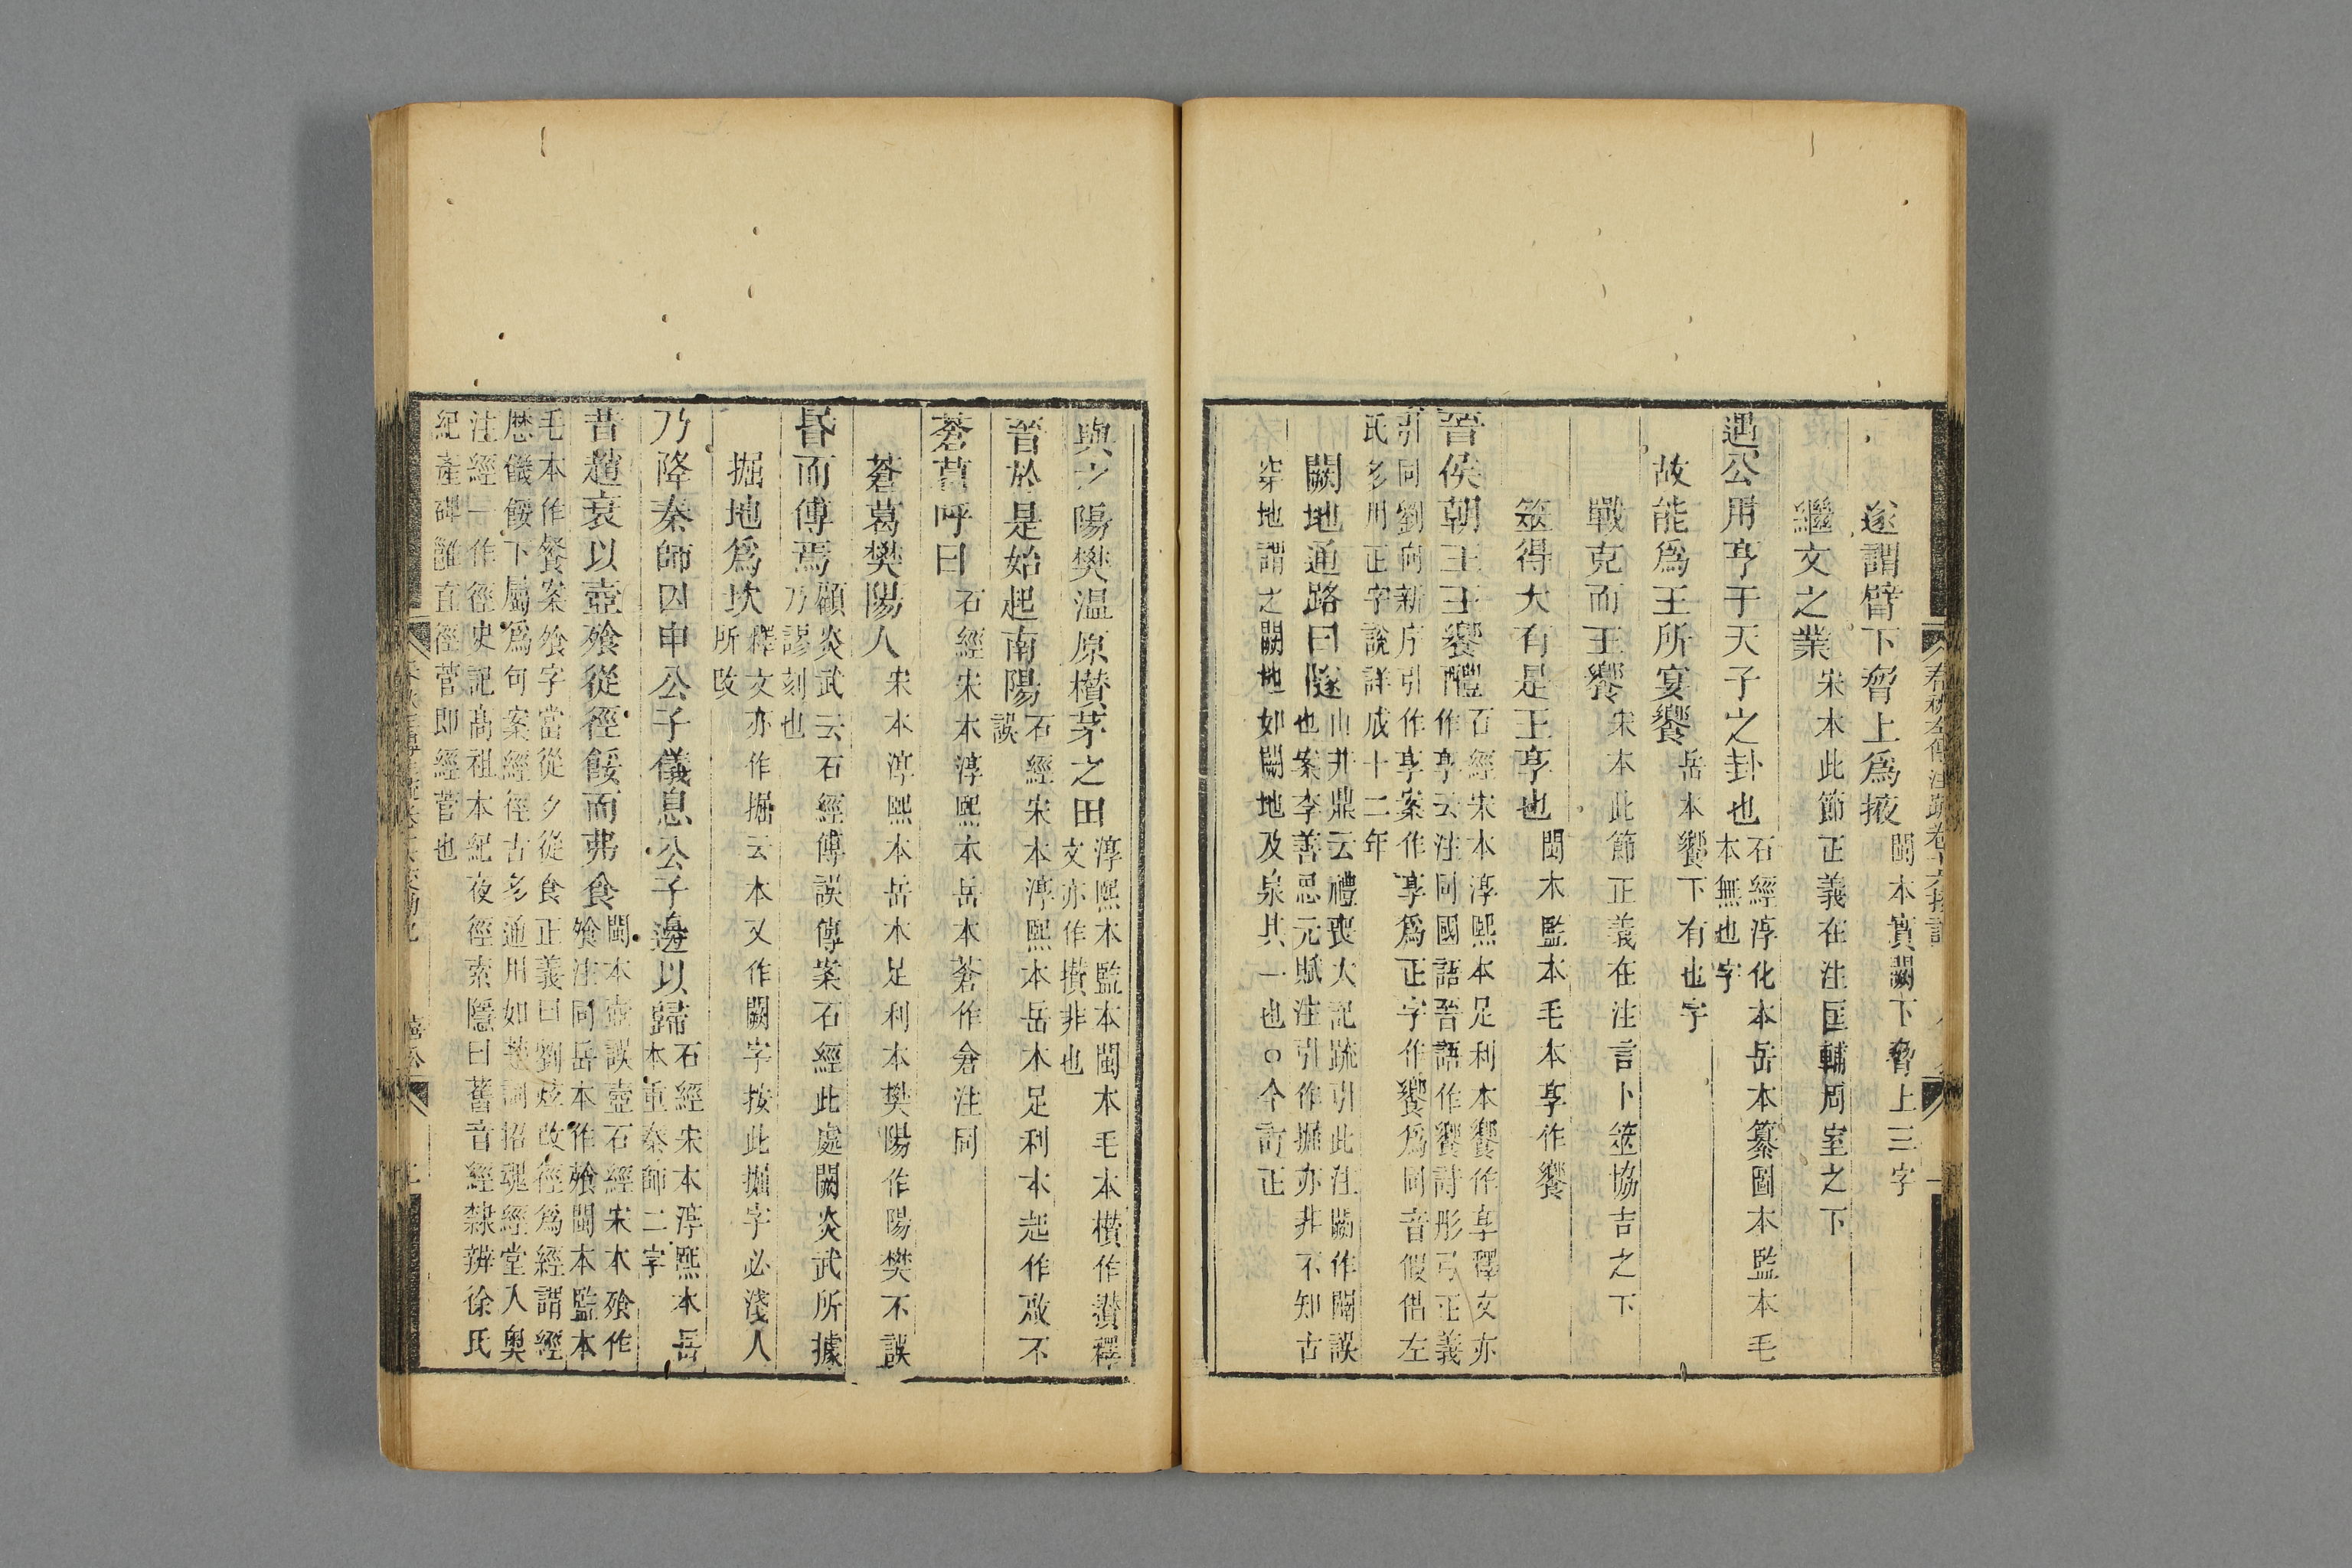 春秋左傳注疏卷十六挍
遂謂臂下脅上爲掖閩本實闕下脅上三字
繼文之業宋本此節正義在注匡輔周室之下
遇公用亨于天子之卦也石經淳化本岳本纂圖本監本毛
本無也字
故能爲王所宴饗岳本饗下有也字
戰克而王饗宋本此節正義在注言卜筮協吉之下
筮得大有是王亨也閩本監本毛本亨作饗
晉侯朝王王饗醴石經宋本淳熙本足利本饗作享釋文亦
作享云注同國語晉語作饗詩彤弓正義
引同劉向新序引作享案作享爲正字作饗爲同音假借左
氏多用正字說詳成十二年
闕地通路曰隧山井鼎云禮喪大記疏引此注闕作闕誤
也案李善思元賦注引作掘亦非不知古
穿地謂之闕地如闕地及泉其一也○今訂正
與之陽樊温原欑茅之田淳熙本監本閩本毛本欑作攅釋
文亦作攅非也
晉於是始起南陽石經宋本淳熙本岳本足利本起作啟不
誤
蒼葛呼曰石經宋本淳熙本岳本蒼作倉注同
蒼葛樊陽人宋本淳熙本岳本足利本樊陽作陽樊不誤
昏而傅焉顧炎武云石經傅誤傳案石經此處闕炎武所據
乃謬刻也
掘地爲坎釋文亦作掘云本又作闕字按此掘字必淺人
所改
乃降秦師囚申公子儀息公子邊以歸石經宋本淳熙本岳
本重秦師二字
昔趙衰以壺飱從徑餒而弗食閩本壺誤壼石經宋本飱作
飧注同岳本作飱閩本監本
毛本作餐案飧字當從夕從食正義曰劉炫改徑爲經謂經
歷儀餒下屬爲句案經徑古多通用如楚詞招魂經堂入奥
注經一作徑史記高祖本紀夜徑索隱曰舊音經隸辨徐氏
紀產碑雖直徑菅即經菅也